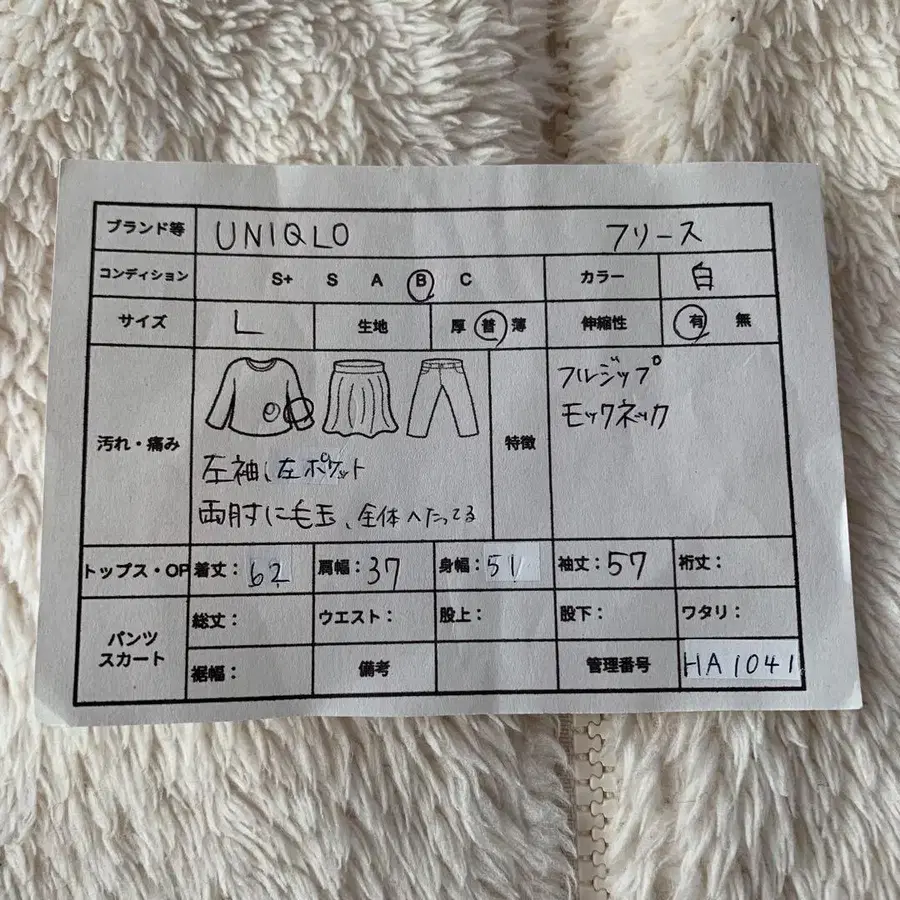 ブランド等 UNIQLO フリース
コンディション S+ S A B C カラー 白
サイズ L 生地 厚 普 薄 伸縮性 有 無
汚れ・痛み 特徴
フルジップ
モックネック
左袖、左ポケット
両肘に毛玉、全体へたってる
トップス・OP 着丈:62 肩幅:37 身幅:51 袖丈:57 裄丈:
パンツ スカート
総丈: ウエスト: 股上: 股下: ワタリ:
裾幅: 備考 管理番号 HA1041